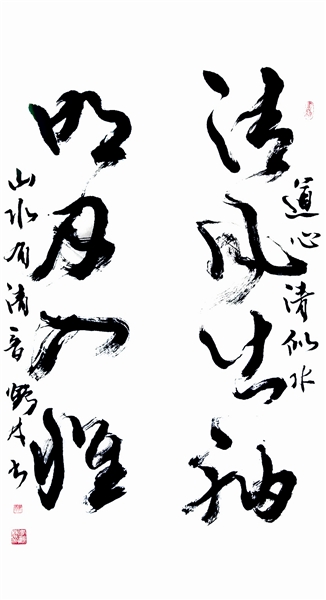 道心清似水
清风出袖
明月入懷
山水有清音